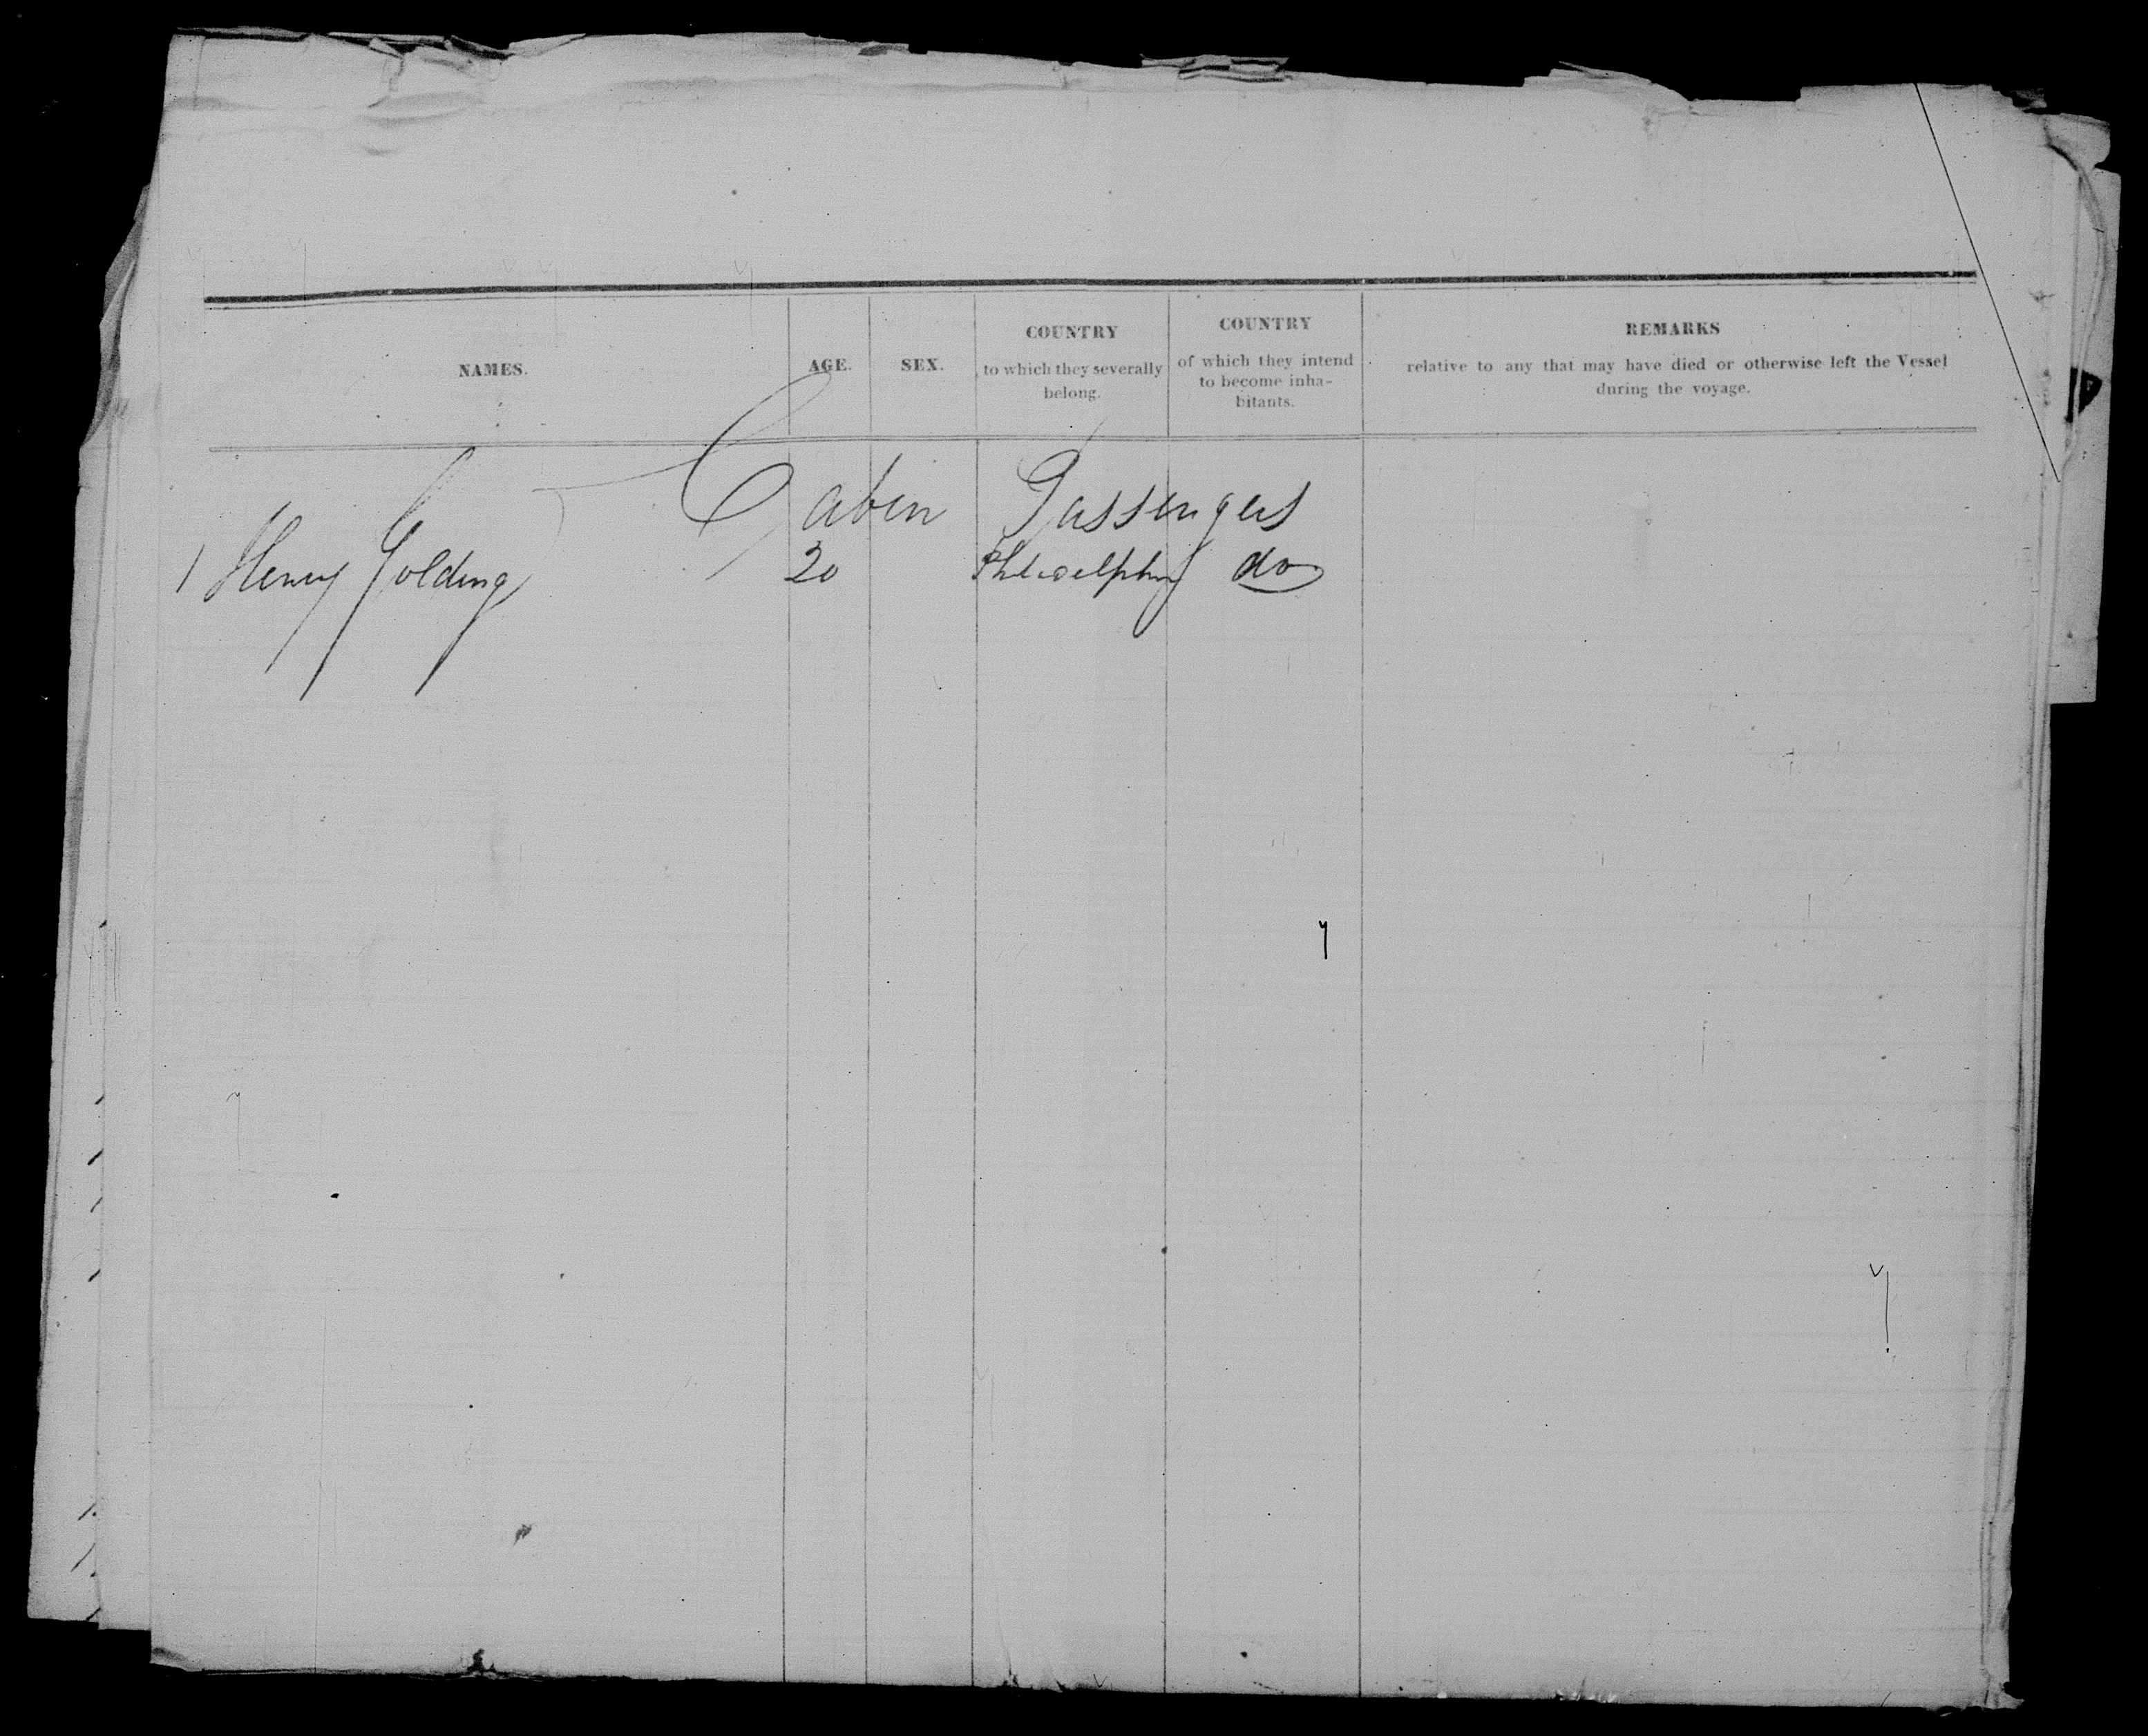 NAMES. AGE. SEX. COUNTRY to which they severally belong. COUNTRY of which they intend to become inha-bitants. REMARKS relative to any that may have died or otherwise left the Vessel during the voyage.
Cabin Passengers
1 Henry Golding 20 Philadelphia do